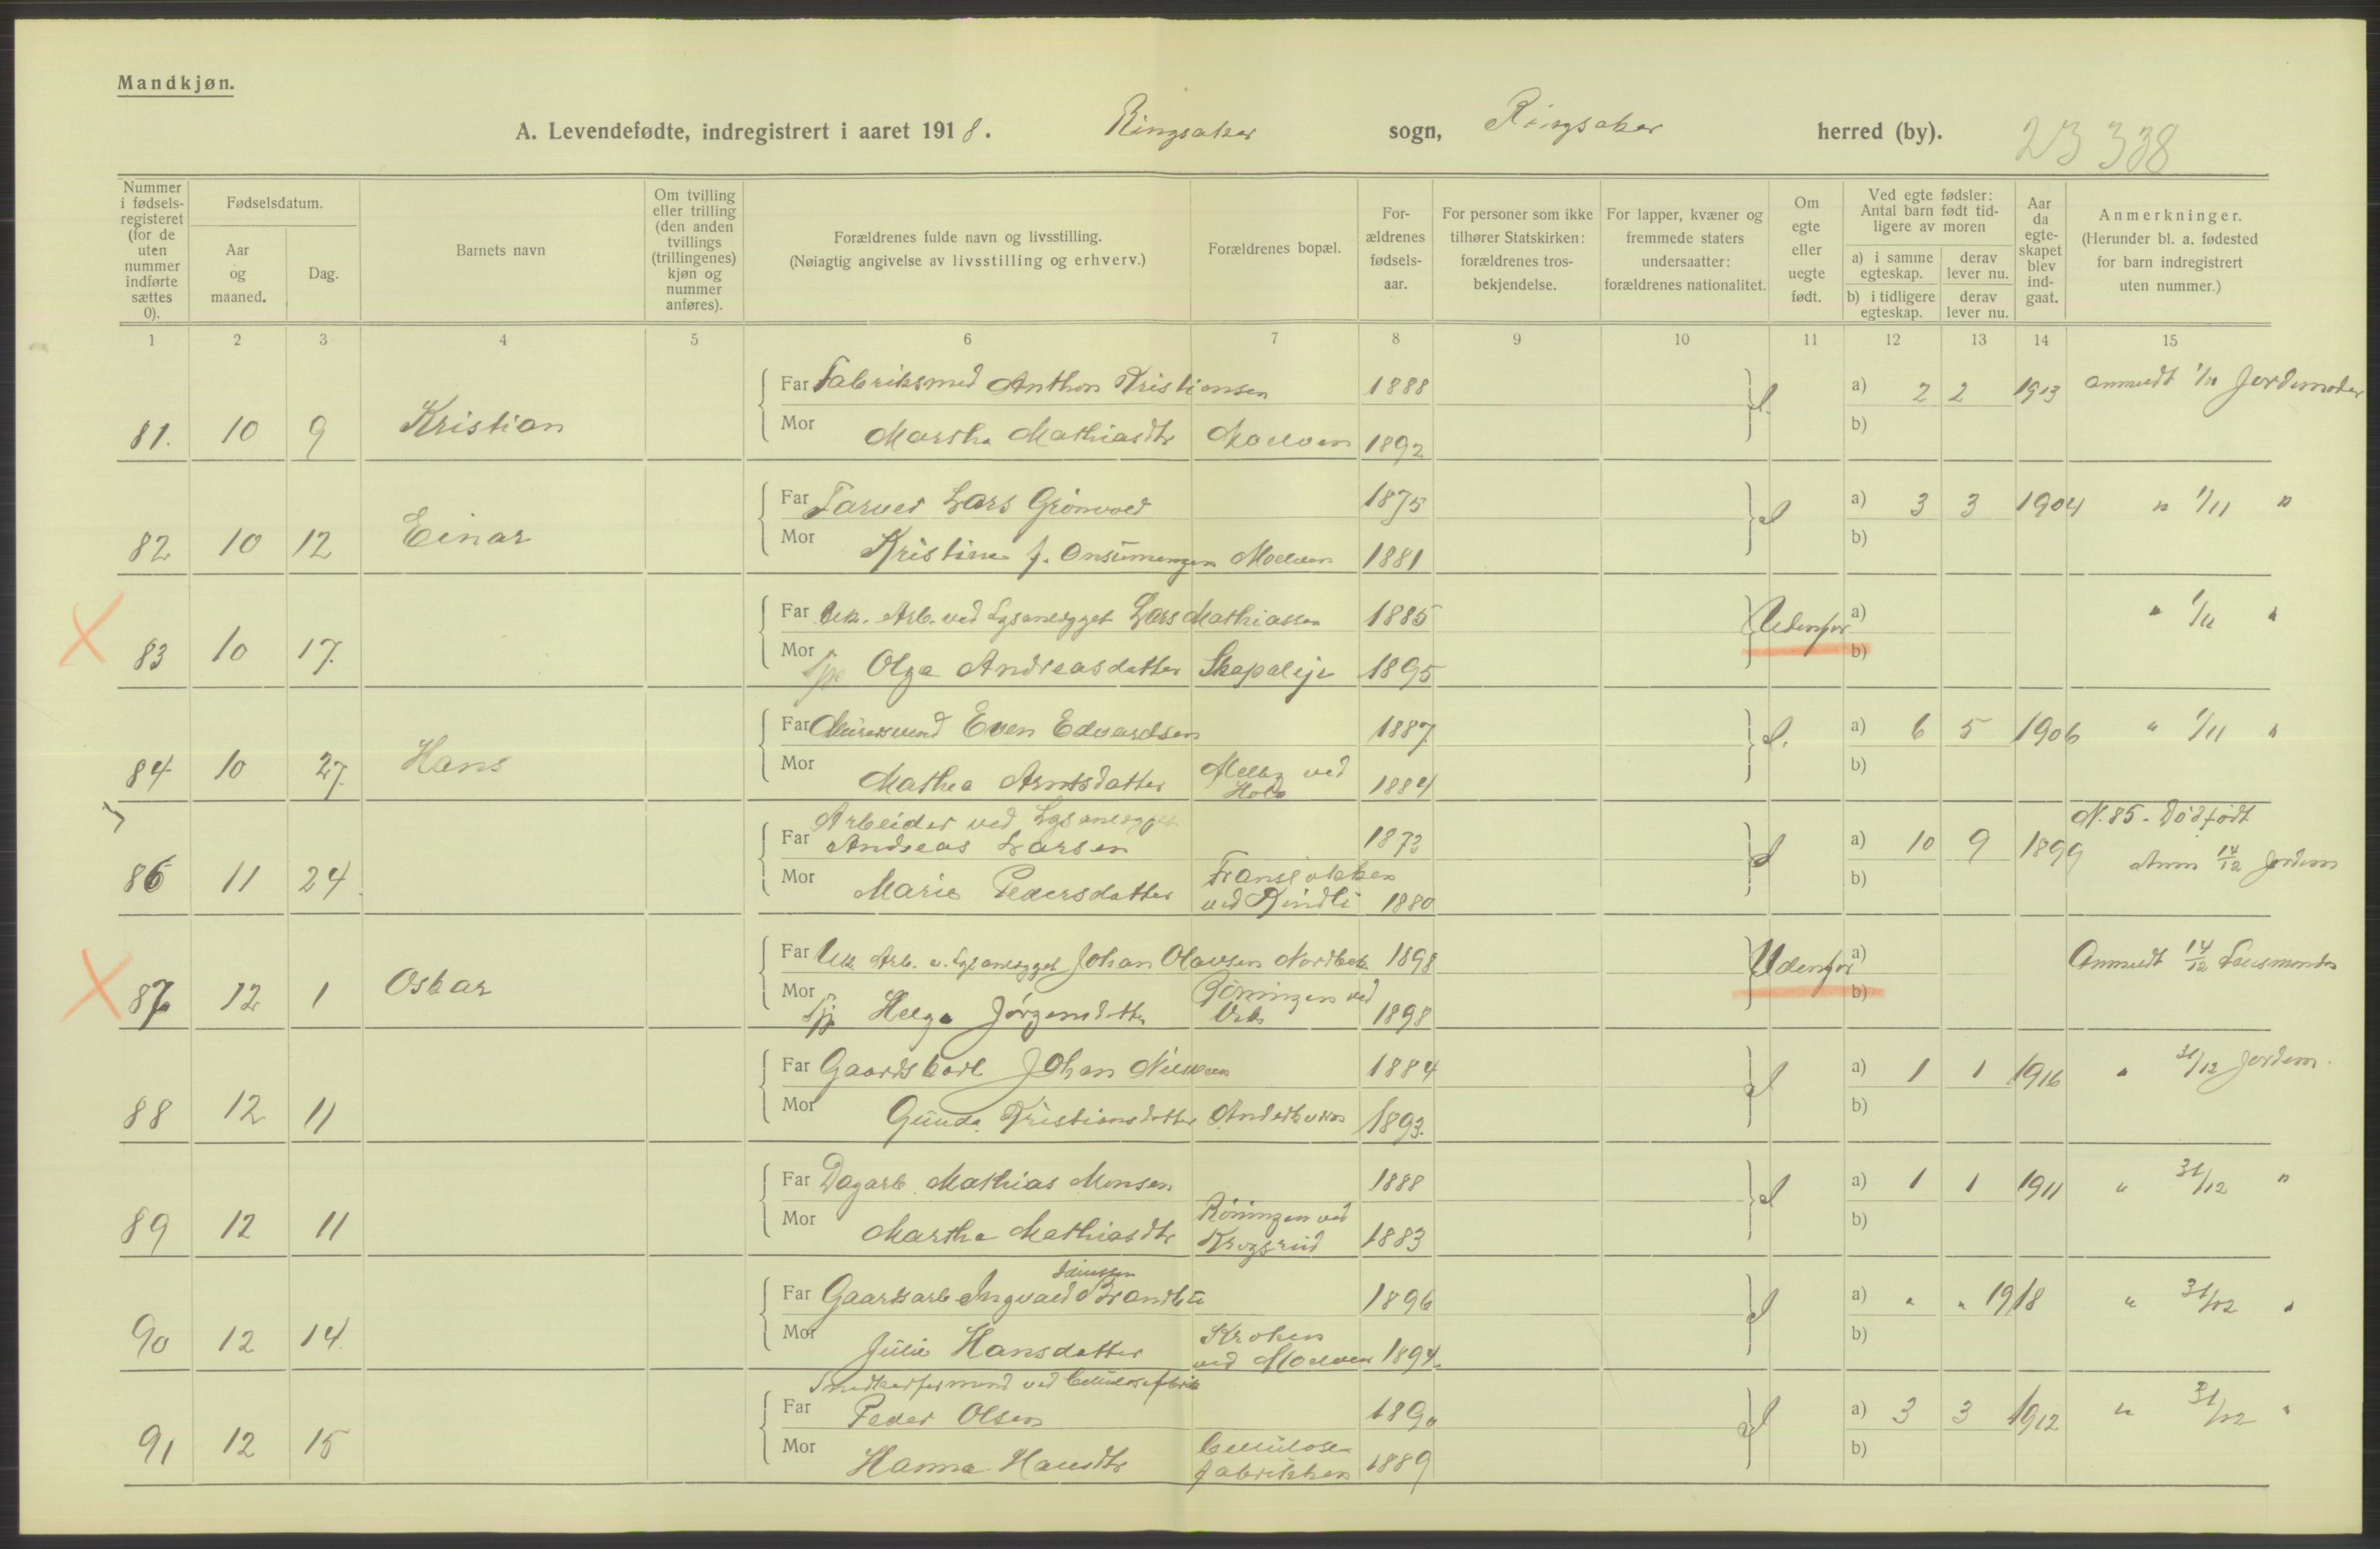 Mandkjøn.
A. Levendefødte, indregistrert i aaret 1918. Ringsaker sogn, Ringsaker herred (by). 23 338
Nummer i fødsels-registeret (for de uten nummer indførte sættes 0).
Fødselsdatum.
Aar og maaned.
Dag.
Barnets navn
Om tvilling eller trilling (den anden tvillings (trillingenes) kjøn og nummer anføres).
Forældrenes fulde navn og livsstilling.
(Nøiagtig angivelse av livsstilling og erhverv.)
Forældrenes bopæl.
For-ældrenes fødsels-aar.
For personer som ikke tilhører Statskirken: forældrenes tros-bekjendelse.
For lapper, kvæner og fremmede staters undersaatter: forældrenes nationalitet.
Om egte eller uegte født.
Ved egte fødsler: Antal barn født tid-ligere av moren
a) i samme egteskap.
derav lever nu.
b) i tidligere egteskap.
derav lever nu.
Aar da egte-skapet blev ind-gaat.
Anmerkninger.
(Herunder bl. a. fødested for barn indregistrert uten nummer.)
1 2 3 4 5 6 7 8 9 10 11 12 13 14 15
Far Fabriksmed Anthon Kristiansen 1888 a) 2 2 1913 anmeldt 1/11 Jordmoder
81. 10 9 Kristian Mor Martha Mathiasdtr Moelven 1892 b)
Far Farver Lars Grönvold 1875 a) 3 3 1904 " 1/11 "
82 10 12 Einar Mor Kristine f. Moelven 1881 b)
Far Uek. Arb. ved Lysanlegget Lars Mathiassen 1885 Udenfor a) " 1/11 "
83 10 17. Mor Olga Andreasdatter 1895 b)
Far Even Edvardsen 1887 a) 6 5 1906 " 1/11 "
84 10 27. Hans Mor Mathea Arntsdatter ved 1884 b)
Arbeider ved Lysanlegget N. 85 - Dödfödt
Far Andreas Larsen 1873 a) 10 9 1899 Anm 14/12 Jordem
86 11 24 Mor Marie Pedersdatter ved Rindli 1880 b)
Far Uek. Arb. v. Lysanlegget Johan Olavsen Nordbek 1898 Udenfor a) Anmeldt 14/12 Lensmanden
87 12 1 Oskar Mor Helga Jörgensdatter ved 1898 b)
Far Gaardskarl Johan Nilssen 1884 a) 1 1 1916 " 31/12 Jordem.
88 12 11 Mor Gunda Kristiansdatter 1893. b)
Far Dagarb. Mathias Monsen 1888 a) 1 1 1911 " 31/12 "
89 12 11 Mor Martha Mathiasdtr Röningen ved Krogsrud 1883 b)
Far Gaardsarb. Ingvald 1896 a) " " 1918 " 31/12 "
90 12 14. Mor Julie Hansdatter Kroken ved Moelven 1894. b)
Snedkerformand ved Cellulosefabrik
Far Peder Olsen 1890 a) 3 3 1912 " 31/12 "
91 12 15 Mor Hanna Hansdtr Cellulosefabrikken 1889 b)